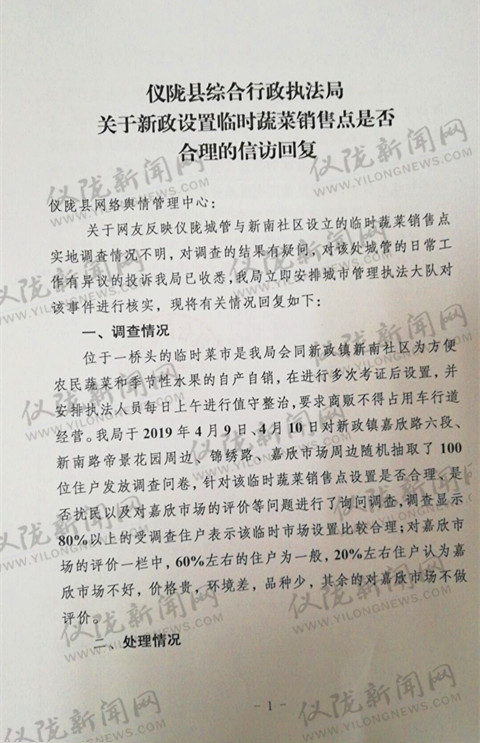 仪陇县综合行政执法局
关于新政设置临时蔬菜销售点是否
合理的信访回复
仪陇县网络舆情管理中心：
关于网友反映仪陇城管与新南社区设立的临时蔬菜销售点
实地调查情况不明，对调查的结果有疑问，对该处城管的日常工
作有异议的投诉我局已收悉，我局立即安排城市管理执法大队对
该事件进行核实，现将有关情况回复如下：
一、调查情况
位于一桥头的临时菜市是我局会同新政镇新南社区为方便
农民蔬菜和季节性水果的自产自销，在进行多次考证后设置，并
安排执法人员每日上午进行值守整治，要求商贩不得占用车行道
经营。我局于 2019 年 4 月 9 日、4 月 10 日对新政镇嘉欣路六段、
新南路帝景花园周边、锦绣路、嘉欣市场周边随机抽取了 100
位住户发放调查问卷，针对该临时蔬菜销售点设置是否合理，是
否扰民以及对嘉欣市场的评价等问题进行了询问调查，调查显示
80%以上的受调查住户表示该临时市场设置比较合理；对嘉欣市
场的评价一栏中，60%左右的住户为一般，20%左右住户认为嘉
欣市场不好，价格贵，环境差，品种少，其余的对嘉欣市场不做
评价。
二、处理情况
- 1 -
仪陇新闻网
WWW.YILONGNEWS.COM